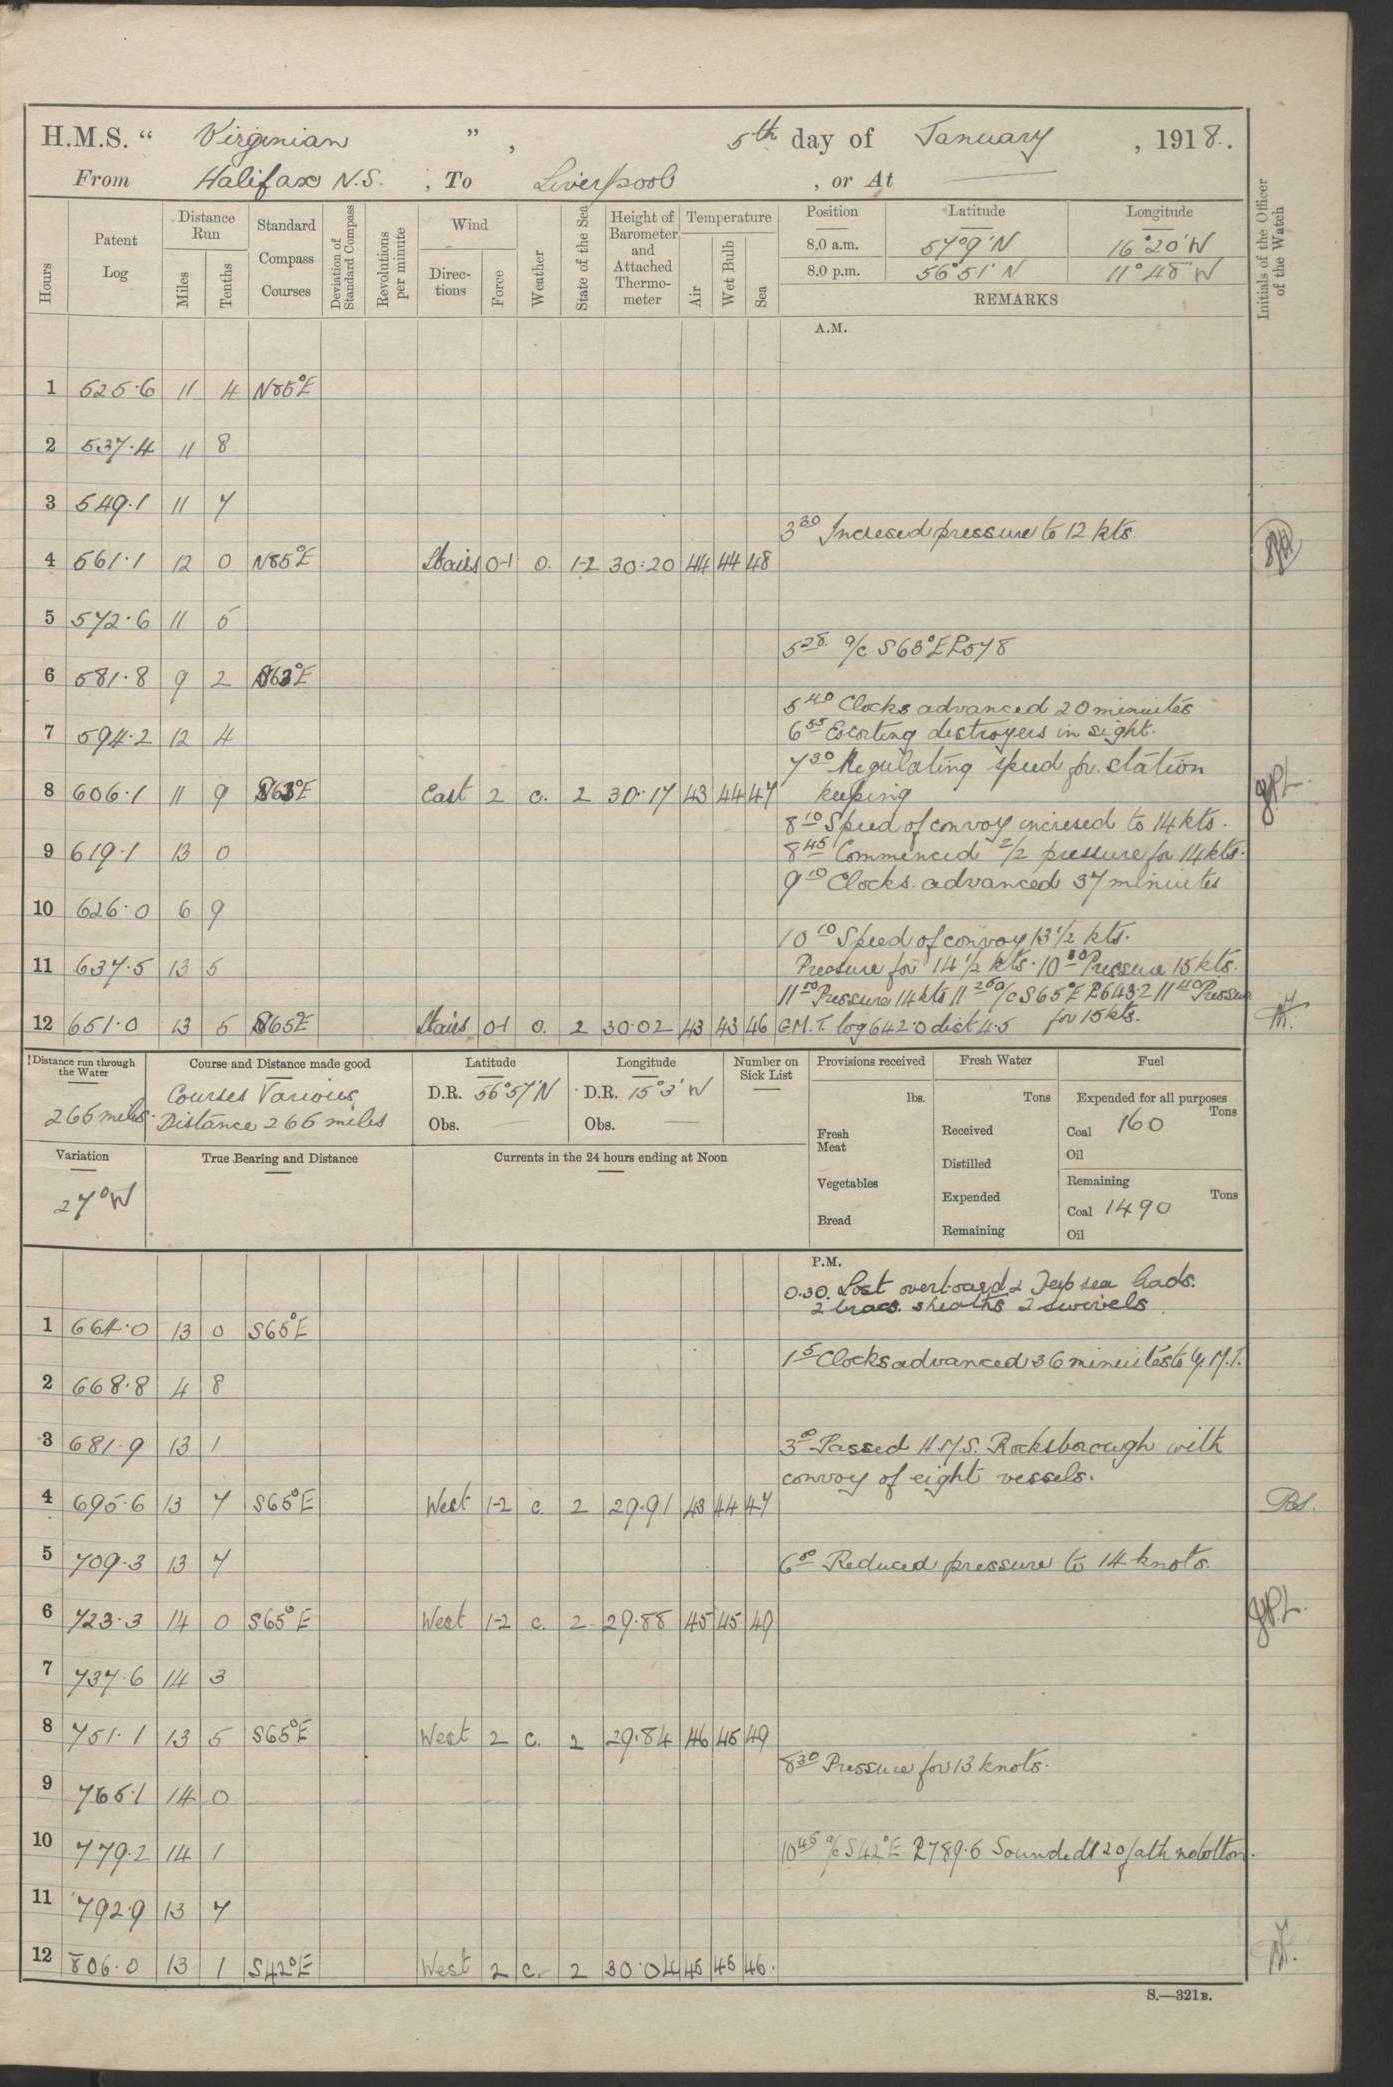 H.M.S. “ Virginian ” , 5th day of January , 1918.
From Halifax N.S. , To Liverpool , or At
Hours
Patent Log
Distance Run
Miles
Tenths
Standard Compass Courses
Deviation of Standard Compass
Revolutions per minute
Wind
Directions
Force
Weather
State of the Sea
Height of Barometer and Attached Thermometer
Temperature
Air
Wet Bulb
Sea
Position Latitude Longitude
8.0 a.m. 57°9'N 16°20'W
8.0 p.m. 56°51'N 11°48'W
REMARKS
Initials of the Officer of the Watch
A.M.
1 525.6 11 4 N85°E
2 537.4 11 8
3 549.1 11 7
3 30 Incresed pressure to 12 kts.
4 561.1 12 0 N85°E Lt airs 0-1 o. 1-2 30.20 44 44 48
5 572.6 11 5
5 28 a/c S63°E PL 578
6 581.8 9 2 S63°E
5 40 Clocks advanced 20 minuites
7 594.2 12 4 6 55 Escorting destroyers in sight.
7 30 Regulating speed for station
8 606.1 11 9 S63°E East 2 c. 2 30.17 43 44 47 keeping
8 10 Speed of convoy incresed to 14 kts.
9 619.1 13 0 8 45 Commenced 2/2 pressure for 14 kts.
9 10 Clocks advanced 37 minuites
10 626.0 6 9
10 10 Speed of convoy 13 1/2 kts.
11 637.5 13 5 Pressure for 14 1/2 kts. 10 30 Pressure 15 kts.
11 50 Pressure 14 kts 11 20 a/c S65°E PL 643.2 11 40 Pressure
12 651.0 13 5 S65°E Lt airs 0-1 o. 2 30.02 43 43 46 G.M.T. log 642.0 dist 4.5 for 15 kts.
Distance run through the Water
266 miles.
Course and Distance made good
Courses Various
Distance 266 miles
Latitude
D.R. 56°57'N
Obs.
Longitude
D.R. 15°3'W
Obs.
Number on Sick List
Provisions received
lbs.
Fresh Meat
Vegetables
Bread
Fresh Water
Tons
Received
Distilled
Expended
Remaining
Fuel
Expended for all purposes
Tons
Coal 160
Oil
Remaining
Tons
Coal 1490
Oil
Variation
27°W
True Bearing and Distance
Currents in the 24 hours ending at Noon
P.M.
0.30. Lost overboard 2 Deep sea leads.
2 brass sheaths 2 swivels.
1 664.0 13 0 S65°E
1 5 Clocks advanced 36 minuites to G.M.T.
2 668.8 4 8
3 681.9 13 1 3 0 Passed H.M.S. Rocksborough with
convoy of eight vessels.
4 695.6 13 7 S65°E West 1-2 c. 2 29.91 43 44 47
5 709.3 13 7 6 50 Reduced pressure to 14 knots.
6 723.3 14 0 S65°E West 1-2 c. 2 29.88 45 45 49
7 737.6 14 3
8 751.1 13 5 S65°E West 2 c. 2 29.84 46 45 49
8 30 Pressure for 13 knots.
9 765.1 14 0
10 779.2 14 1 10 45 a/c S42°E PL 789.6 Sounded 120 fath no bottom.
11 792.9 13 7
12 806.0 13 1 S42°E West 2 c. 2 30.04 45 45 46.
S.—321B.